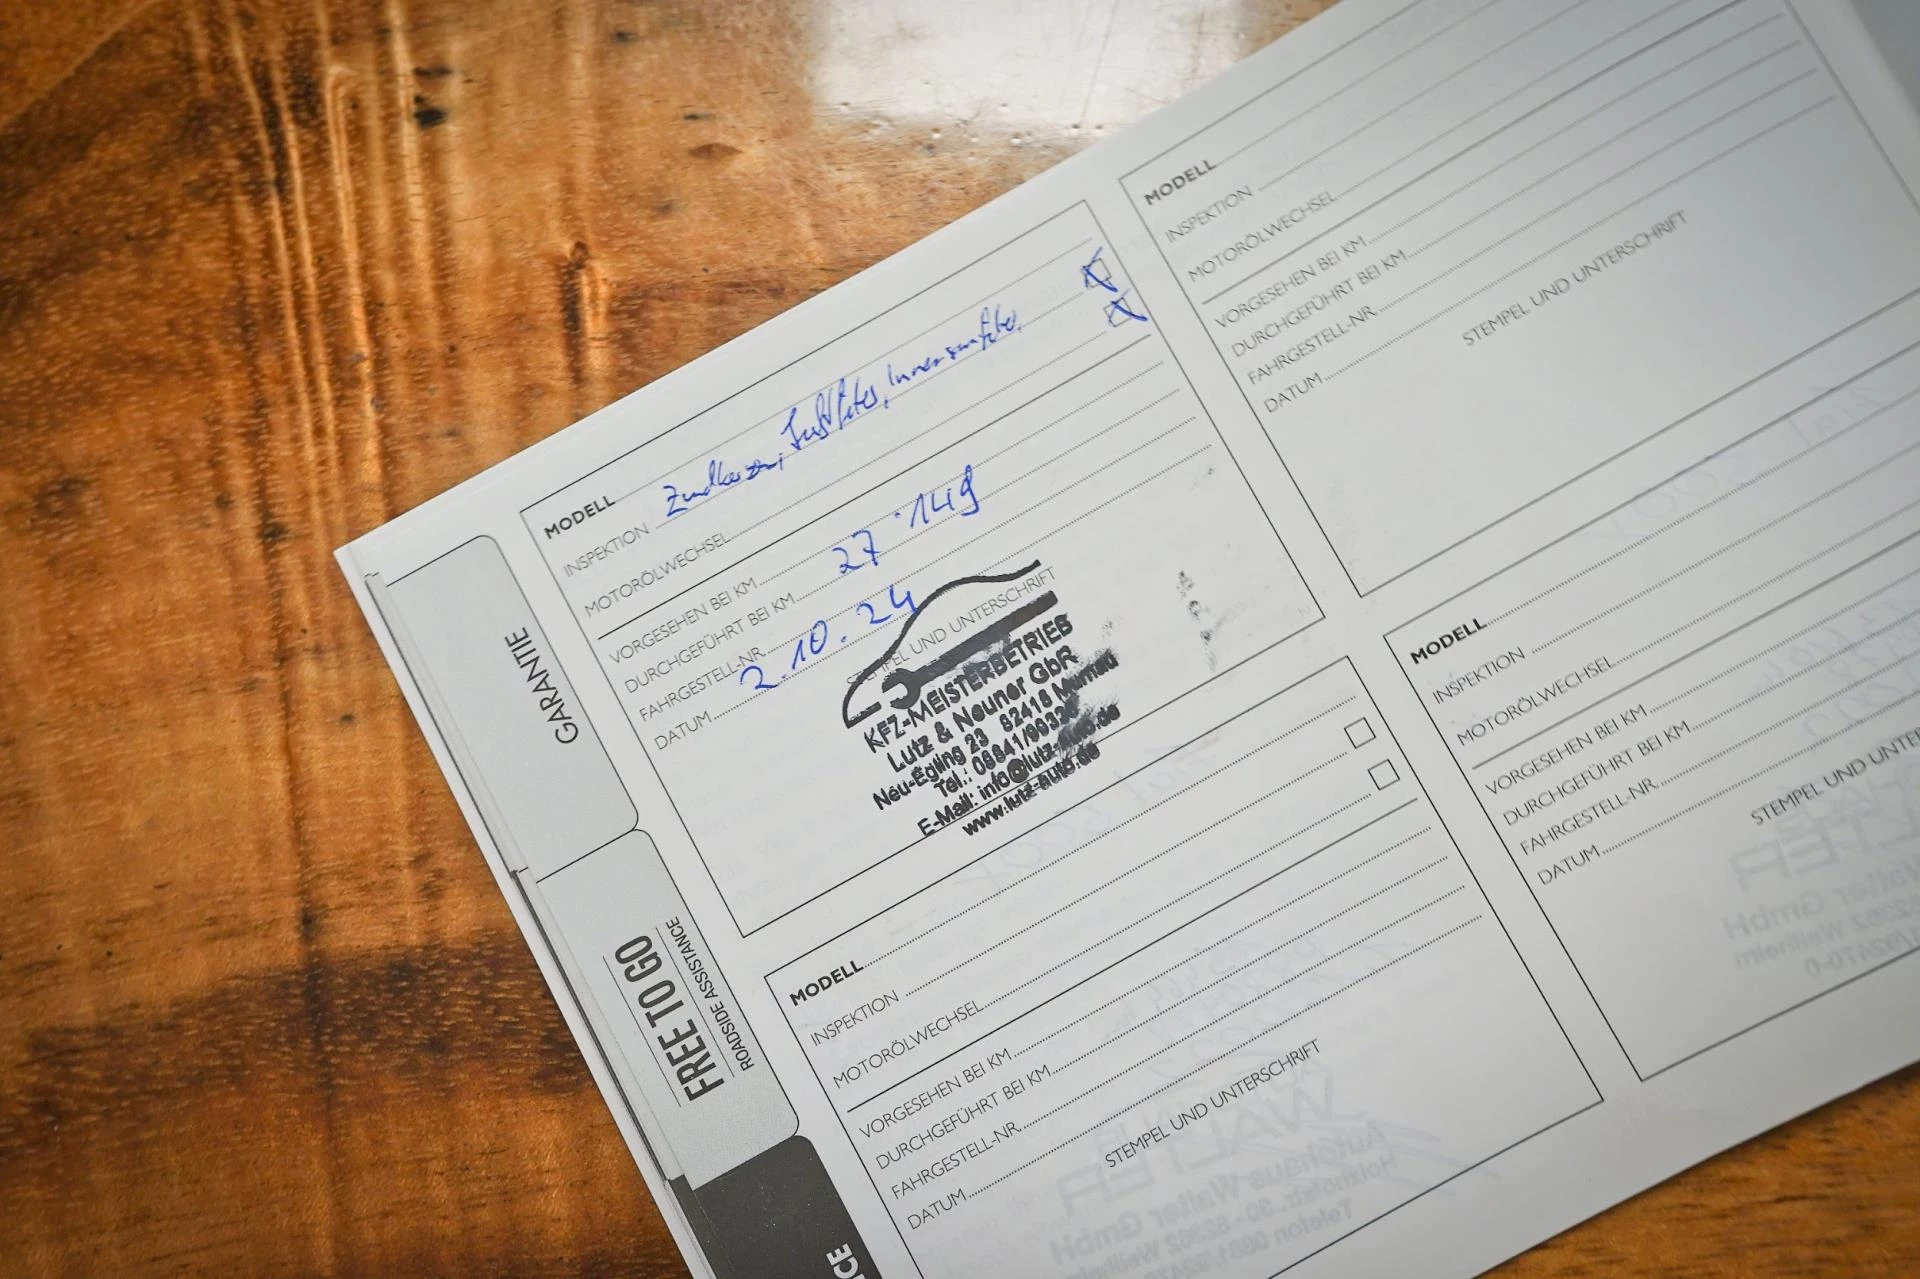 GARANTIE
FREE TO GO
ROADSIDE ASSISTANCE
MODELL
INSPEKTION Zündkerzen, Luftfilter, Innenraumfilter
MOTORÖLWECHSEL
VORGESEHEN BEI KM
DURCHGEFÜHRT BEI KM 27.149
FAHRGESTELL-NR.
DATUM 2.10.24
STEMPEL UND UNTERSCHRIFT
KFZ-MEISTERBETRIEB
Lutz & Neuner GbR
Neu-Egling 23 82418 Murnau
Tel.: 08841/
E-Mail: info@lutz-auto.de
www.lutz-auto.de
MODELL
INSPEKTION
MOTORÖLWECHSEL
VORGESEHEN BEI KM
DURCHGEFÜHRT BEI KM
FAHRGESTELL-NR.
DATUM
STEMPEL UND UNTERSCHRIFT
MODELL
INSPEKTION
MOTORÖLWECHSEL
VORGESEHEN BEI KM
DURCHGEFÜHRT BEI KM
FAHRGESTELL-NR.
DATUM
STEMPEL UND UNTERSCHRIFT
MODELL
INSPEKTION
MOTORÖLWECHSEL
VORGESEHEN BEI KM
DURCHGEFÜHRT BEI KM
FAHRGESTELL-NR.
DATUM
STEMPEL UND UNTER